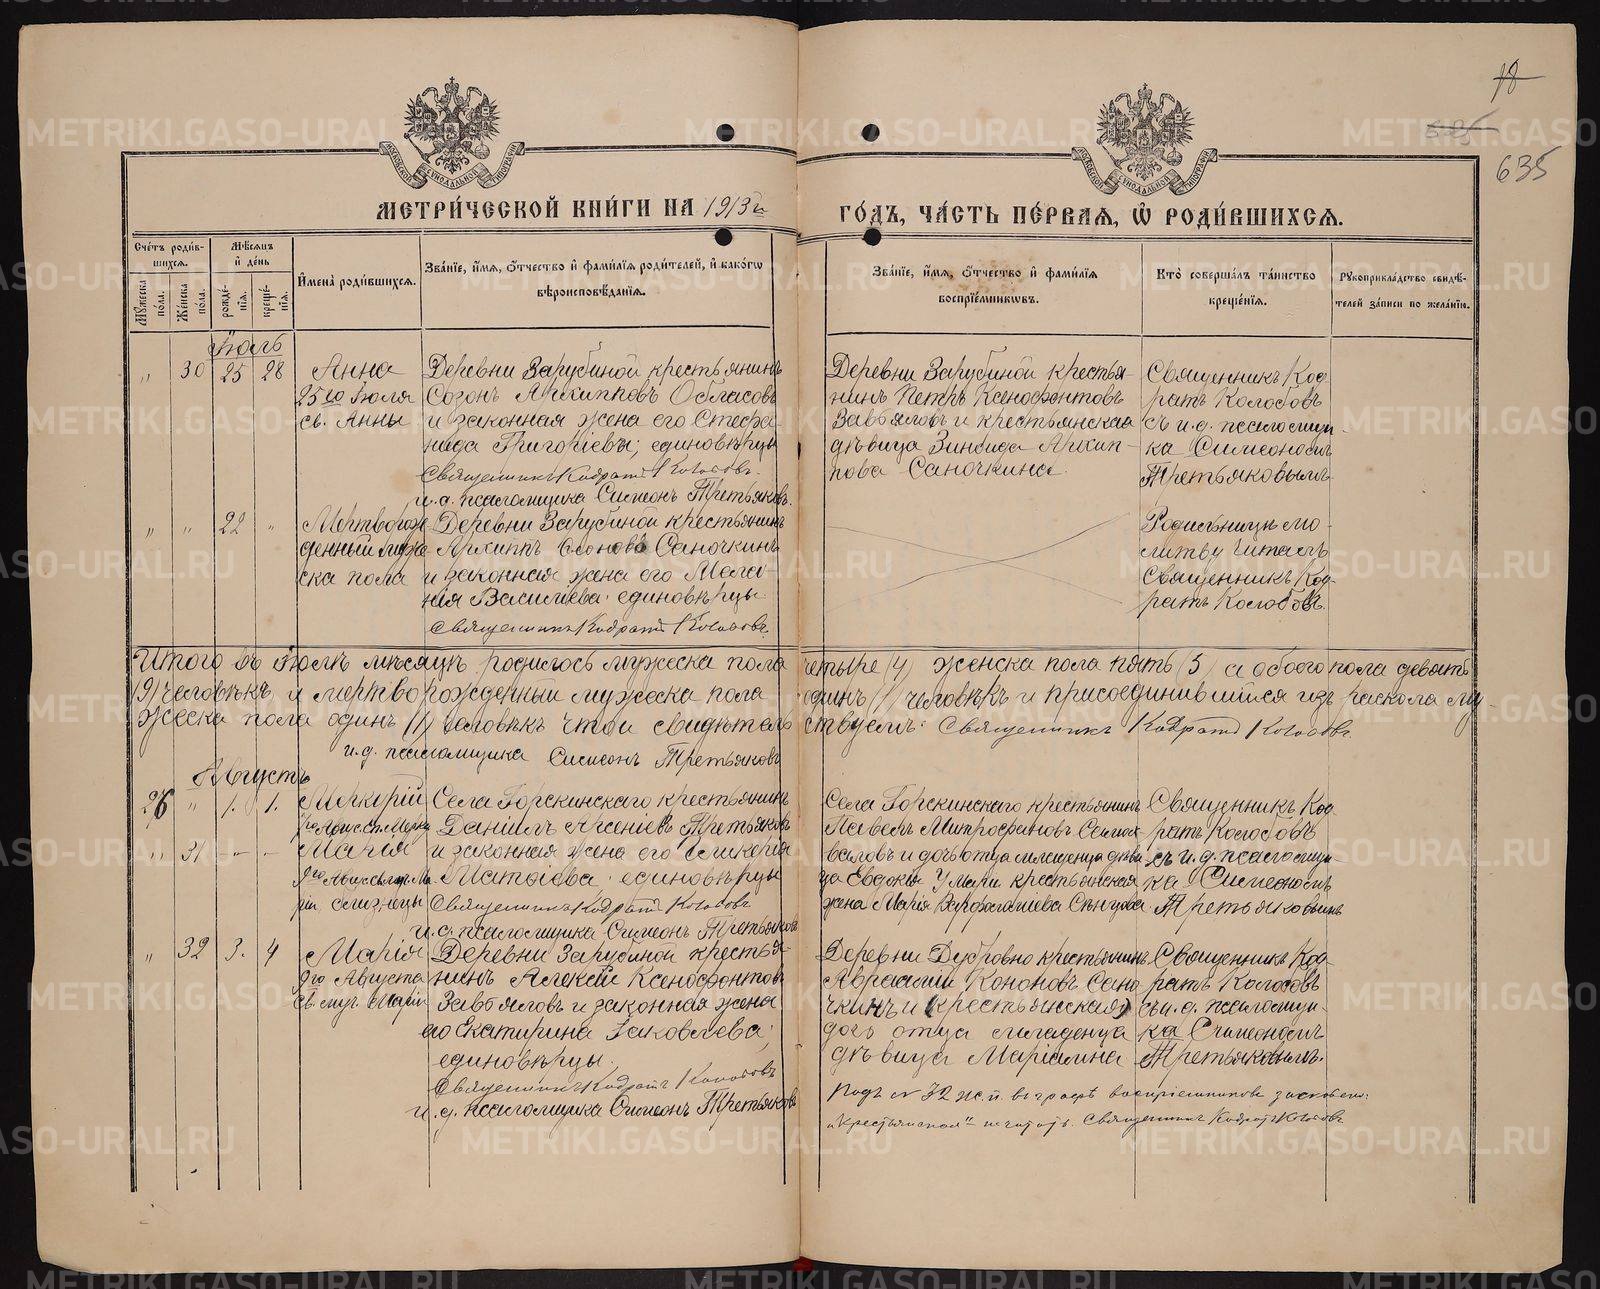 18
535
635
МОСКОВСКОЙ СѴНОДАЛЬНОЙ ТИПОГРАФІИ
МОСКОВСКОЙ СѴНОДАЛЬНОЙ ТИПОГРАФІИ
МЕТРИ́ЧЕСКОЙ КНИ́ГИ НА 1913 й
ГО́ДЪ, ЧА́СТЬ ПЕ́РВАѦ, Ѡ҆ РОДИ́ВШИХСѦ.
Сче́тъ роди́вшихсѧ.
Мѣ́сѧцъ и҆ де́нь
Мꙋ́жеска по́ла.
Же́нска по́ла.
рожде́нїѧ.
креще́нїѧ.
И҆мена̀ роди́вшихсѧ.
Зва́нїе, и҆́мѧ, ѻ҆́тчество и҆ фами́лїѧ роди́телей, и҆ како́гѡ
вѣроисповѣ́данїѧ.
Зва́нїе, и҆́мѧ, ѻ҆́тчество и҆ фами́лїѧ
воспрїе́мникѡвъ.
Кто̀ соверша́лъ та́инство
креще́нїѧ.
Рꙋкоприкла́дство свидѣ́
телей за́писи по жела́нїю.
Іюль
" 30 25 28
Анна
25го Іюля
св. Анны
Деревни Зарубиной крестьянинъ
Созонъ Архипповъ Обласовъ
и законная жена его Стефа
нида Григоріева; единовѣрцы
Священникъ Кодратъ Колосовъ.
и.д. псаломщика Симеонъ Третьяковъ.
Деревни Зарубиной крестья
нинъ Петръ Ксенофонтовъ
Завьяловъ и крестьянская
дѣвица Зинаида Архип-
пова Саночкина.
Священникъ Код
ратъ Колосовъ
съ и.д. псаломщи
ка Симеономъ
Третьяковымъ
" " 22 "
Мертворож
денный муже
ска пола
Деревни Зарубиной крестьянинъ
Архиппъ Саночкинъ
и законная жена его Мела
нія Васильева; единовѣрцы.
Священникъ Кодратъ Колосовъ.
Родильницѣ мо
литву читалъ
Священникъ Код
ратъ Колосовъ.
Итого въ Іюлѣ мѣсяцѣ родилось мужеска пола четыре (4) женска пола пять (5) а обоего пола девять
(9) человѣкъ и мертворожденный мужеска пола одинъ (1) человѣкъ и присоединившійся изъ раскола му
жеска пола одинъ (1) человѣкъ что и свидѣтельствуемъ: Священникъ Кодратъ Колосовъ.
и.д. псаломщика Симеонъ Третьяковъ
Августъ
26 " 1. 1.
Меркурій
Села Горскинскаго крестьянинъ
Даніилъ Арсеніевъ Третьяковъ
и законная жена его Гликерія
единовѣрцы
Священникъ Кодратъ Колосовъ
и.д. псаломщика Симеонъ Третьяковъ
" 31 - -
Марія
Села Горскинскаго крестьянинъ
Павелъ Митрофановъ
и дочь отца младенца дѣви
ца Евдокія У Маріи крестьянская
жена Марія
Священникъ Код
ратъ Колосовъ
съ и.д. псаломщи
ка Симеономъ
Третьяковымъ
" 32 3. 4
Марія
9го Августа
св. муч. Маріи
Деревни Зарубиной крестья
нинъ Алексій Ксенофонтовъ
Завьяловъ и законная жена
его Екатерина Іаковлева;
единовѣрцы.
Священникъ Кодратъ Колосовъ
и.д. псаломщика Симеонъ Третьяковъ
Деревни Дубровно крестьянинъ
Авраамій Кононовъ Сано
чкинъ и (крестьянская)
дочь отца младенца
дѣвица Маріамна
Священникъ Код
ратъ Колосовъ
съ и.д. псаломщи
ка Симеономъ
Третьяковымъ.
Подъ № 32 ж.п. въ графѣ воспріемниковъ
"крестьянская" не читать. Священникъ Кодратъ Колосовъ
METRIKI.GASO-URAL.RU